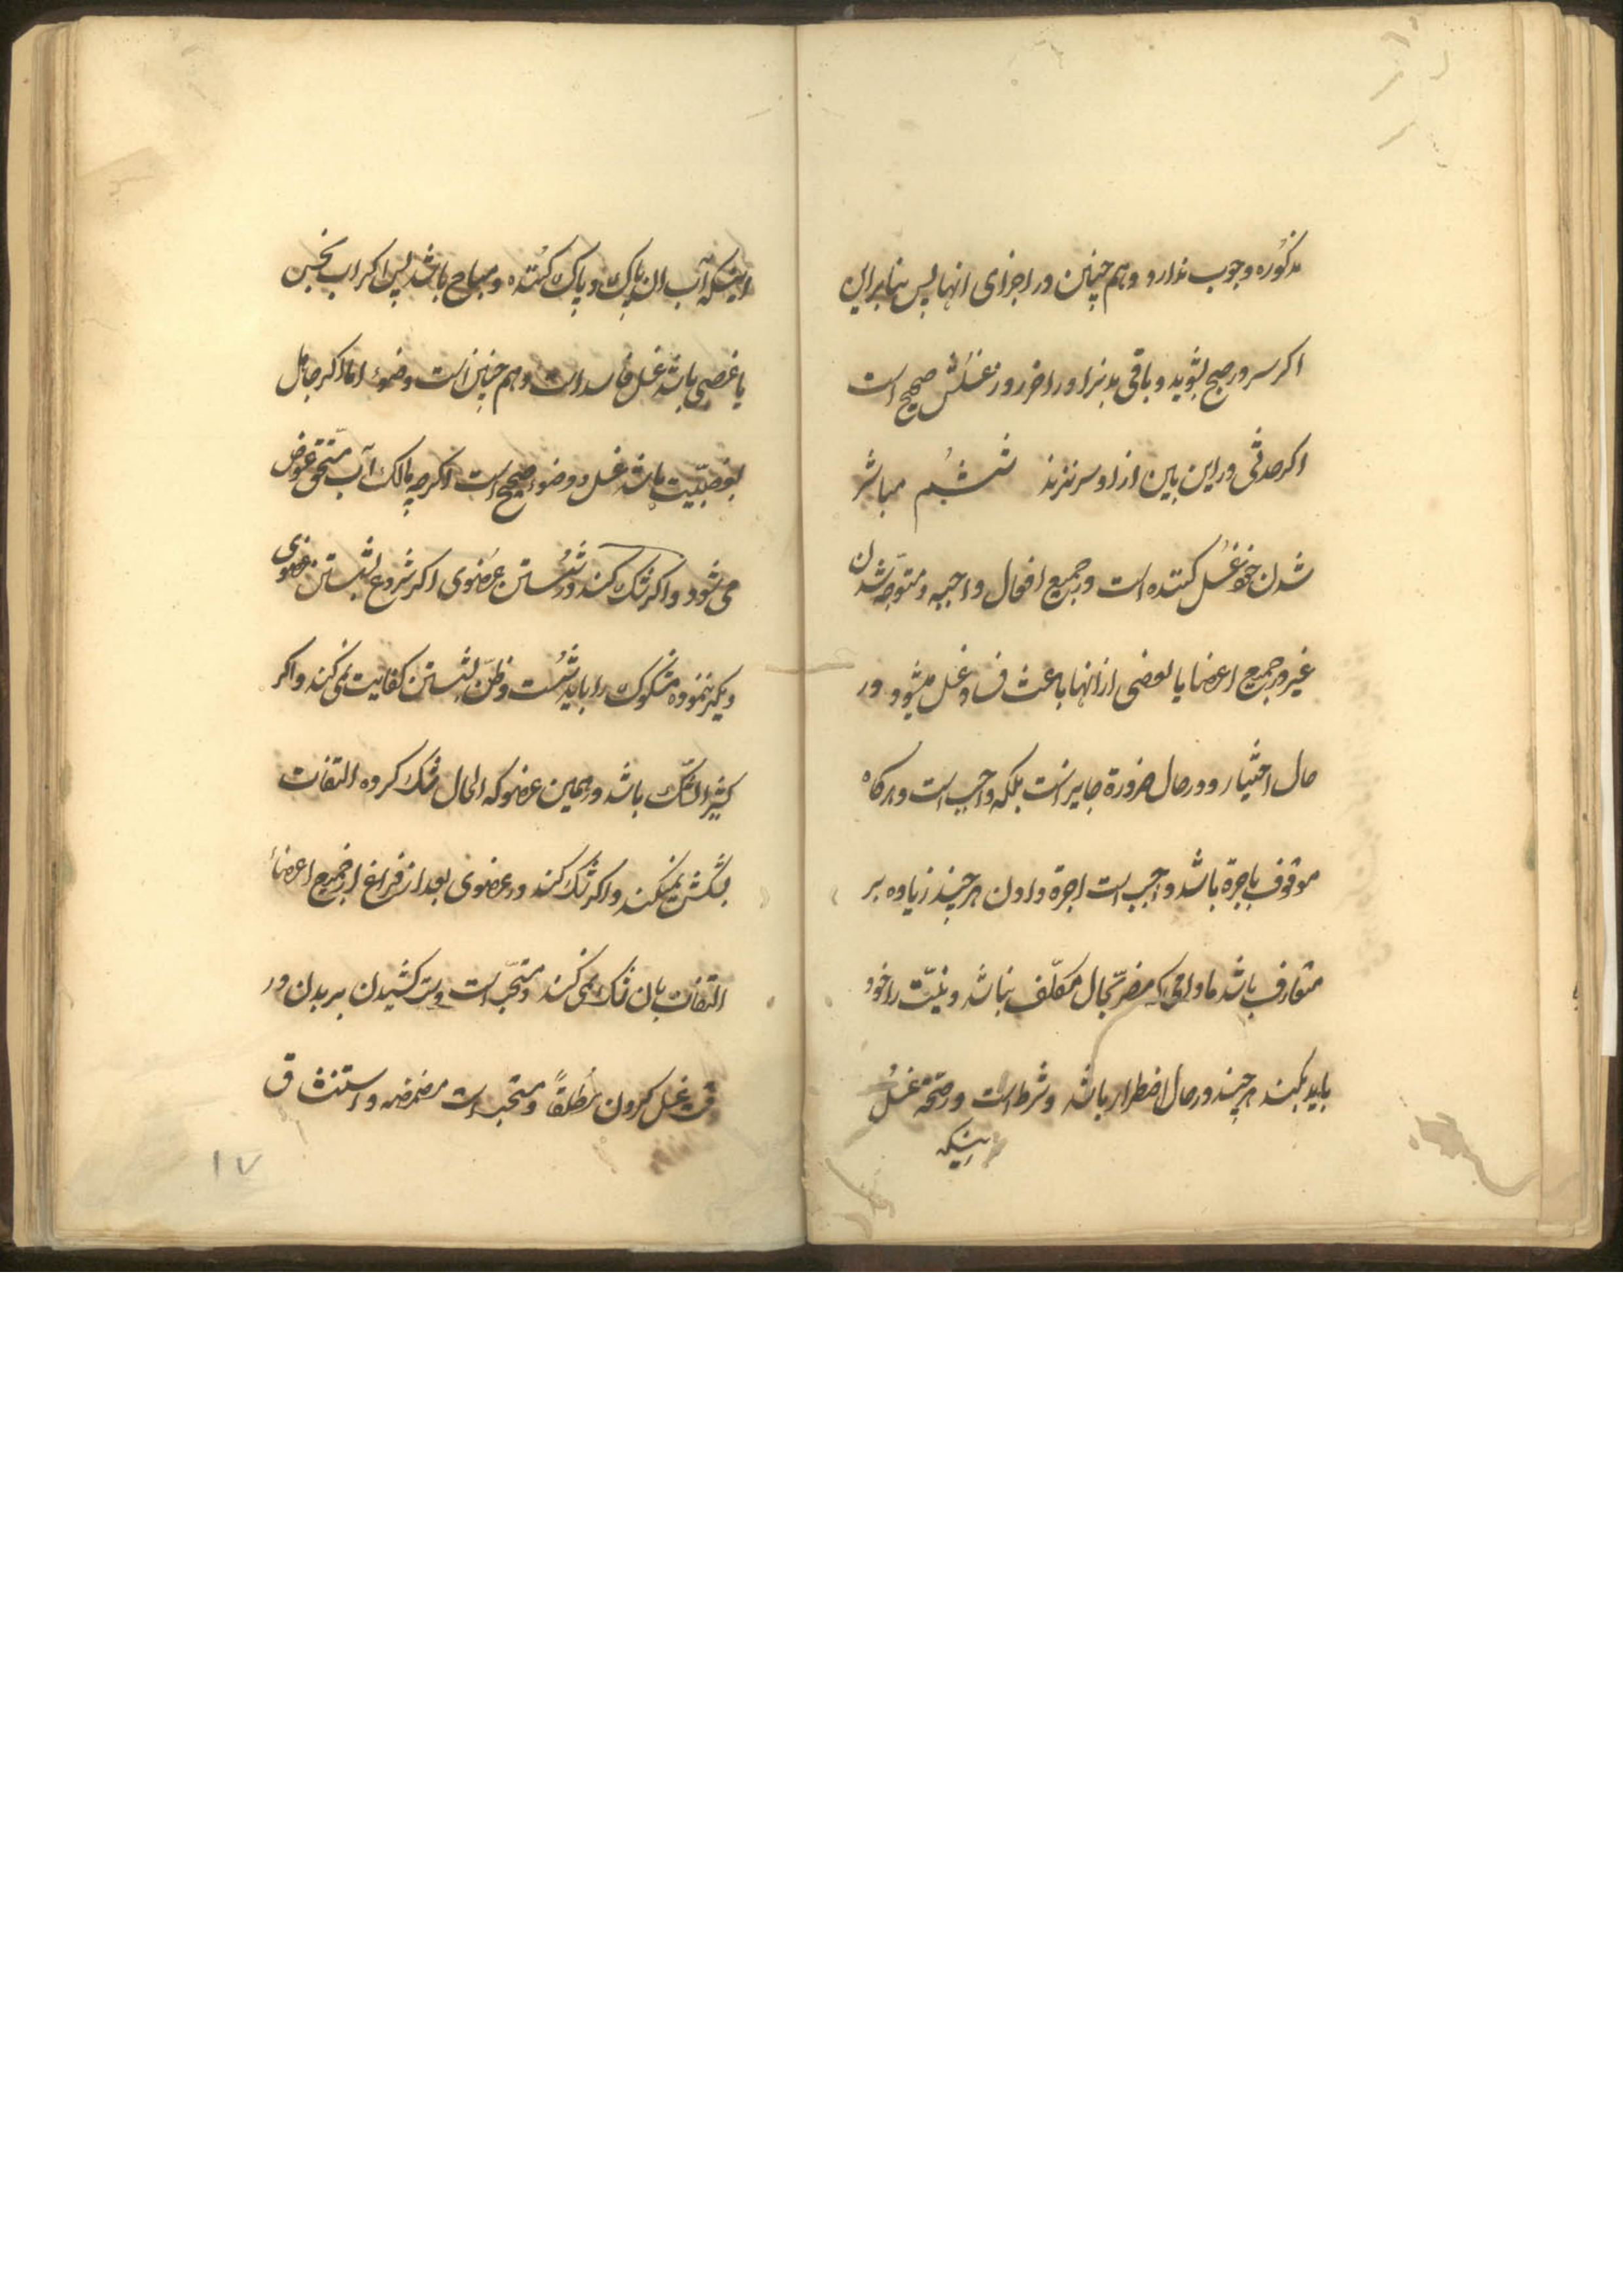 مذکوره وجوب ندارد و هم چنین در اجزای انها پس بنابراین
اکر سر در صبح بشوید و باقی بدنرا در اخر روز غسلش صحیح است
اکر حدثی در این بین از او سر نزند ششم مباشر
شدن خود غسل کننده است در جمیع افعال واجبه و متوجه شدن
غیر در جمیع اعضا یا بعضی از انها باعث فساد غسل میشود در
حال اختیار و در حال ضرورة جایز است بلکه واجب است و هرکاه
موقوف باجرة باشد واجب است اجرة دادن هر چند زیاده بر
متعارف باشد مادامی که مضر بحال مکلف نباشد و نیت را خود
باید بکند هر چند در حال اضطرار باشد و شرط است در صحة غسل
اینکه
اینکه آب ان پاک و پاک کننده و مباح باشد پس اکر اب نجس
یا غصبی باشد غسل فاسد است و هم چنین است وضوء اما اکر جاهل
بغصبیت باشد غسل و وضوء صحیح است اکرچه مالک آب مستحق عوض
می شود و اکر شک کند در شستن عضوی اکر شروع بشستن عضوی
دیکر ننموده مشکوک را باید شست و ظن بشستن کفایت نمی کند و اکر
کثیر الشک باشد در همین عضو که الحال شک کرده التفات
بشکش نمیکند و اکر شک کند در عضوی بعد از فراغ از جمیع اعضاء
التفات بان شک نمی کند و مستحب است دست کشیدن بر بدن در
وقت غسل کردن مطلقاً و مستحب است مضمضه و استنشاق
۱۷